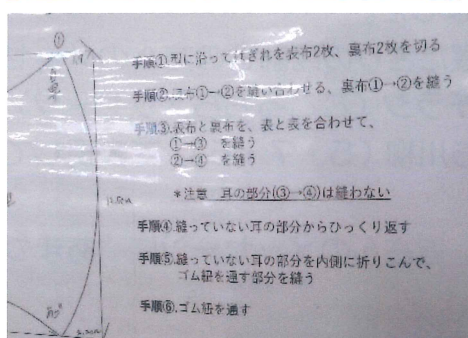 ①
手順①.型に沿ってはぎれを表布2枚、裏布2枚を切る
手順②.表布①→②を縫い合わせる、裏布①→②を縫う
手順③.表布と裏布を、表と表を合わせて、
①→③ を縫う
②→④ を縫う
*注意 耳の部分(③→④)は縫わない
手順④.縫っていない耳の部分からひっくり返す
手順⑤.縫っていない耳の部分を内側に折りこんで、
ゴム紐を通す部分を縫う
手順⑥.ゴム紐を通す